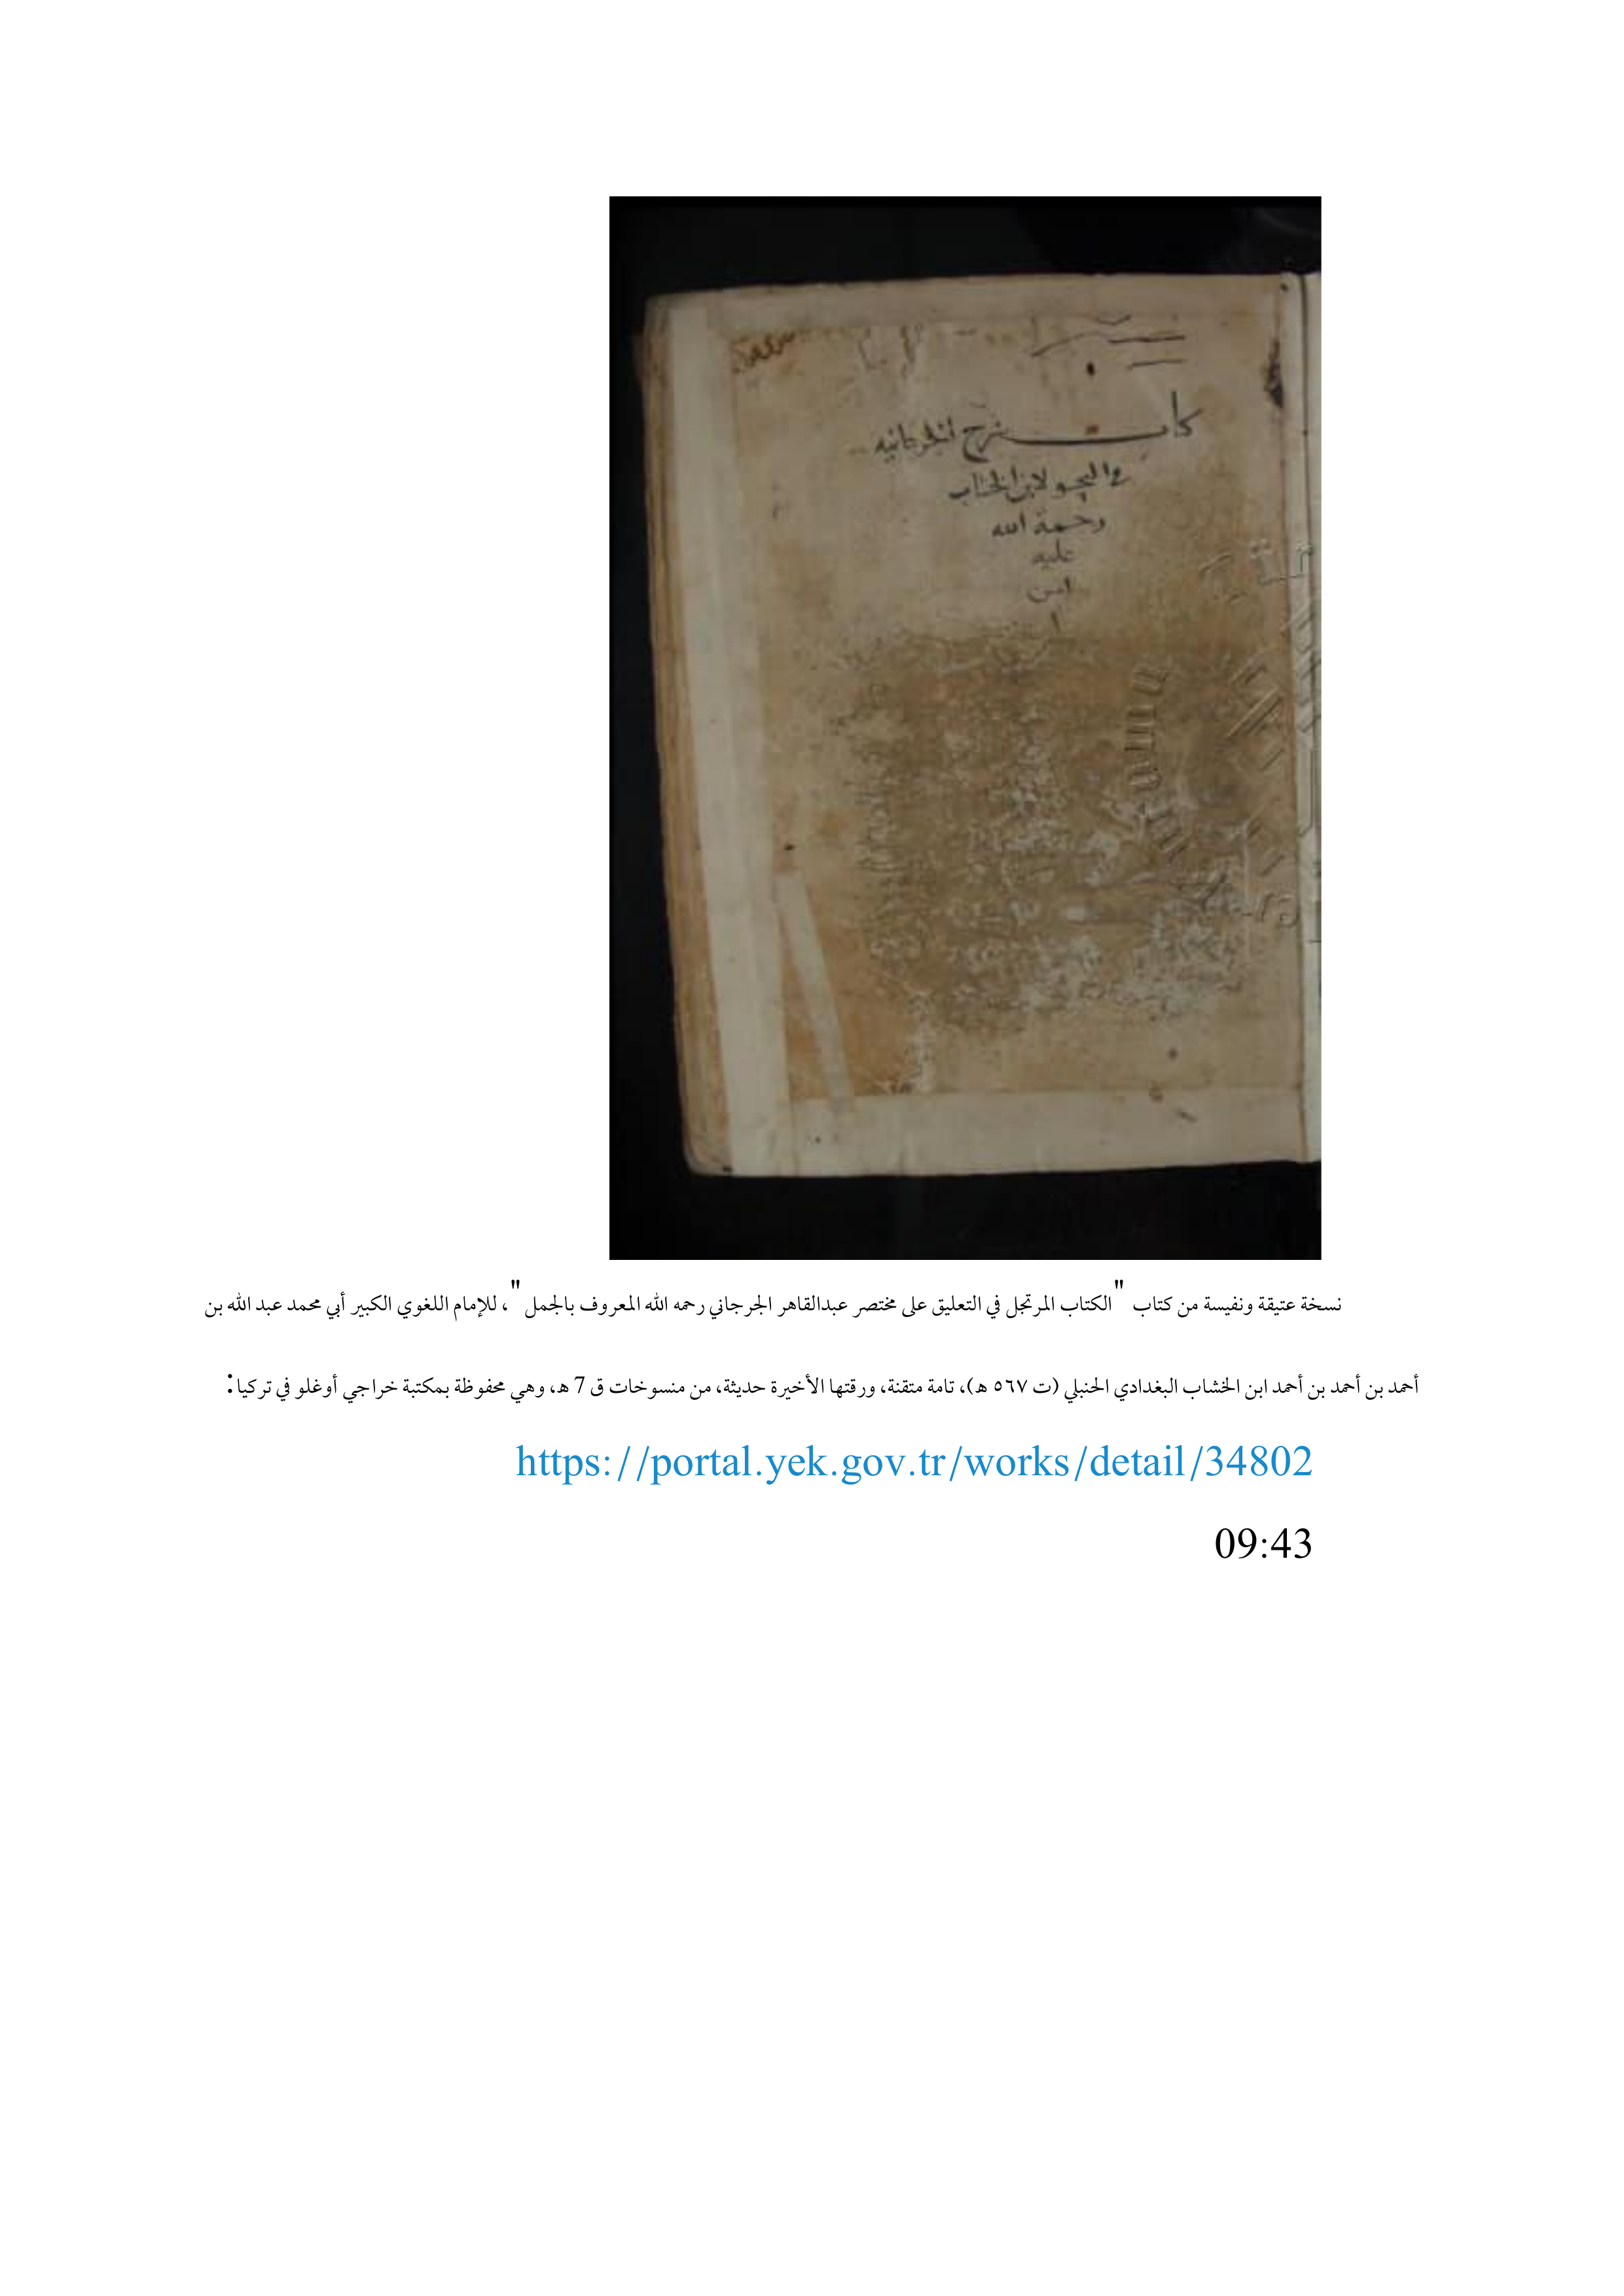 كتاب شرح الجرجانيه
في النحو لابن الخشاب
رحمة الله
عليه
امين
نسخة عتيقة ونفيسة من كتاب "الكتاب المرتجل في التعليق على مختصر عبدالقاهر الجرجاني رحمه الله المعروف بالجمل"، للإمام اللغوي الكبير أبي محمد عبد الله بن
أحمد بن أحمد بن أحمد ابن الخشاب البغدادي الحنبلي (ت ٥٦٧ هـ)، تامة متقنة، ورقتها الأخيرة حديثة، من منسوخات ق 7 هـ، وهي محفوظة بمكتبة خراجي أوغلو في تركيا:
https://portal.yek.gov.tr/works/detail/34802
09:43